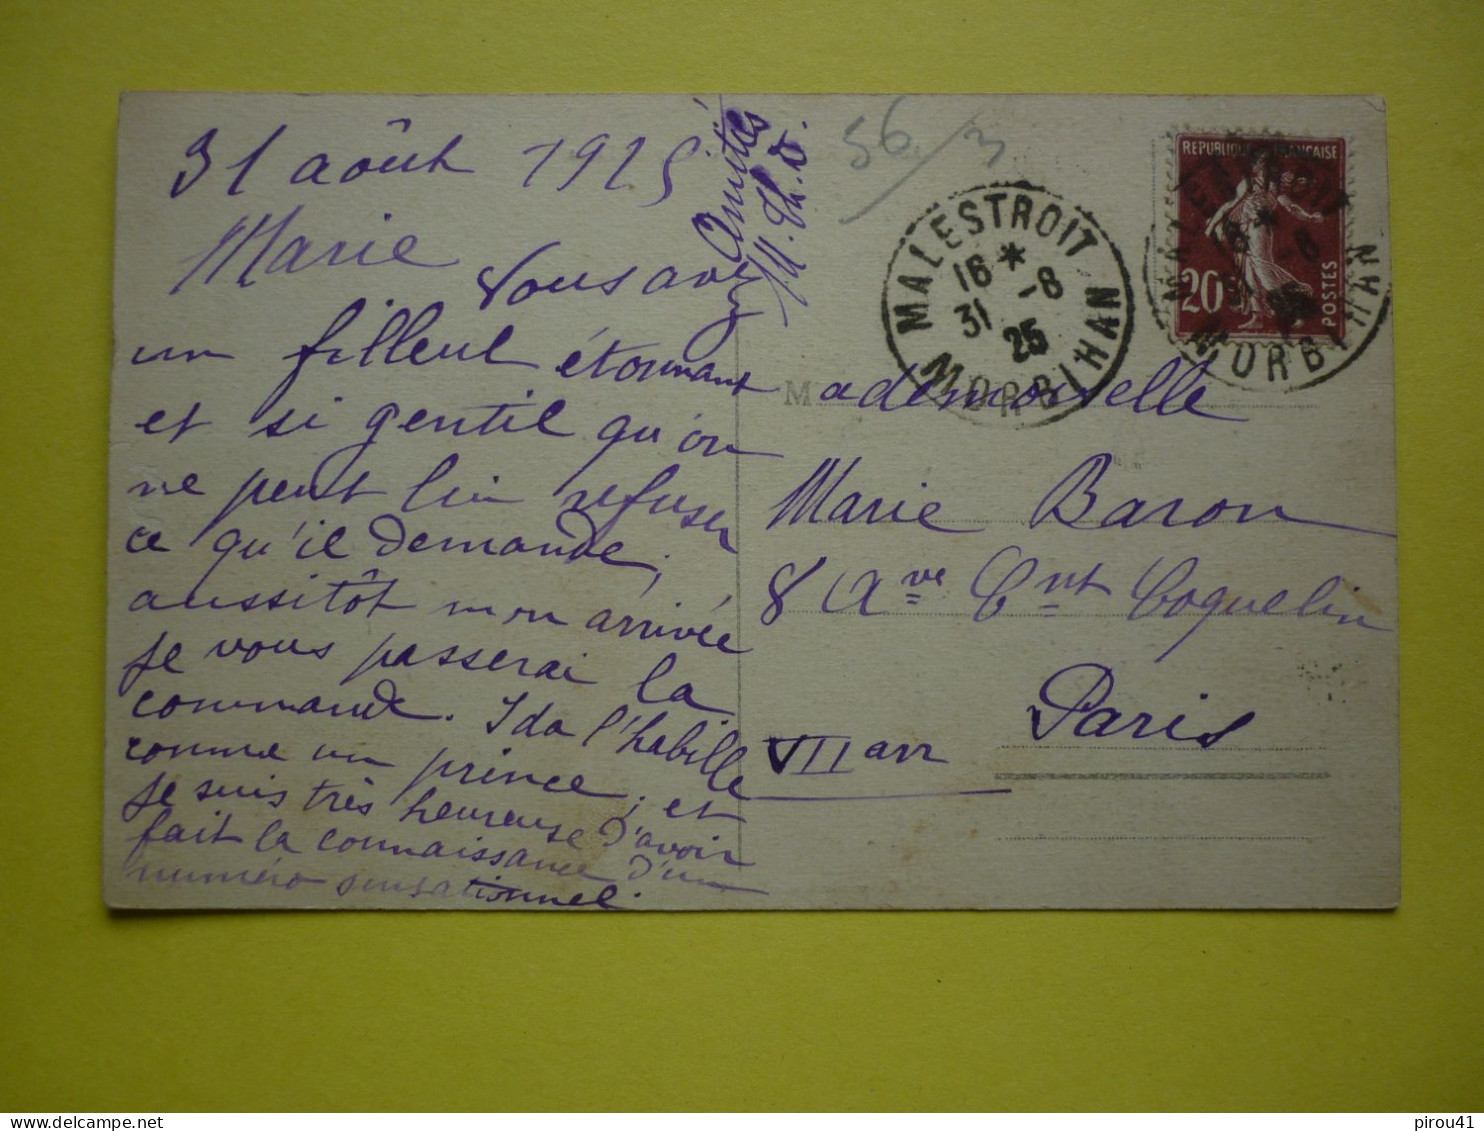 31 août 1925
Marie
Vous avez
un filleul étonnant
et si gentil qu'on
ne peut lui refuser
ce qu'il demande,
aussitôt mon arrivée
je vous passerai la
commande. Ida l'habille
comme un prince, et
je suis très heureuse d'avoir
fait la connaissance d'un
numéro sensationnel.
Amitiés
M. Th. D.
56/3
MALESTROIT
16 * 31 -8 25
MORBIHAN
REPUBLIQUE FRANCAISE
20
POSTES
MALESTROIT
MORBIHAN
Mademoiselle
Marie Baron
8 Ave Cnt Coquelin
Paris
VII arr
pirou41